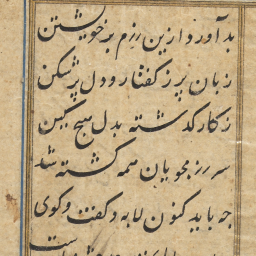 بد آورد ازین رزم بر خویشتن
زبان پر ز گفتار و دل پر شکن
ز کار گذشته بدل هیچ کین
سر رزمجویان همه گشته شد
چه باید کنون لابه و گفت و کوی